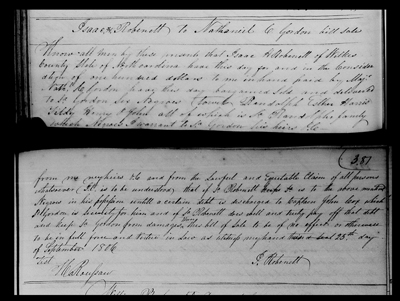 Isaac Robinett to Nathaniel C Gordon bill Sale
Know all men by these presents that I Isaac Robinett of Wilkes
County State of North carolina have this day for and in the Consider
ation of one hundred dollars to me in hand paid by Majr
Nathl. C Gordon have this day bargained Sold and delivered
to Sd Gordon Six Negroes Randolph Esther Harriet
Tildy Henry & John all of which is Sd family
which Negroes I warrant to Sd Gordon his heirs &c
381
from me my heirs &c and from the Lawful and Equitable Claim of all persons
whatsoever (It is to be understood that if Sd Robinett keeps Sd the above
Negroes in his possession until a certain debt is discharged to Captain John which
Sd Gordon is Security for him and if Sd Robinett does well and truly pay off that debt
and keep Sd Gordon from damages, then this bill of Sale to be of no effect or otherwise
to be in full force and virtue in Law as witness my hand seal 25th day
of September 1816
Test I. Robinett